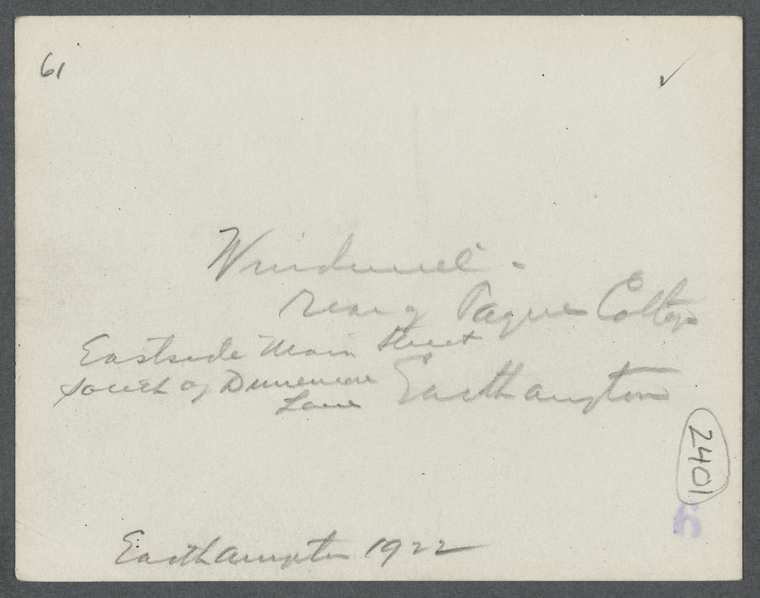 61 ✓
Windmill -
rear of Payne Cottage
Eastside Main Street
south of Dunemere
Lane Easthampton
2401
Easthampton 1922